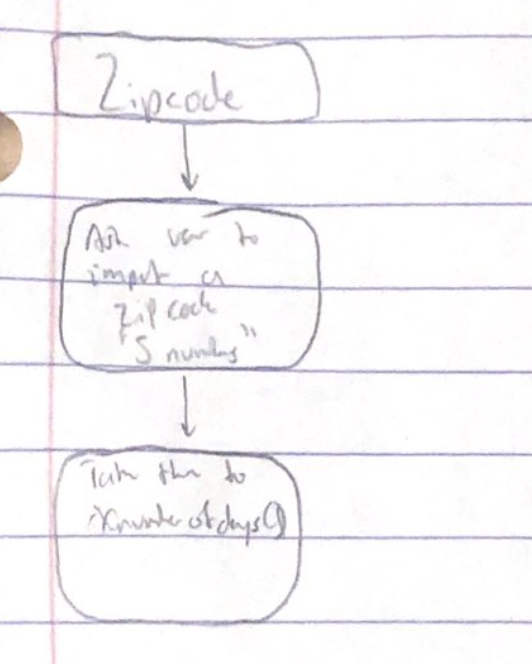 Zipcode
Ask user to
input a
zip code
"5 numbers"
Take them to
numberofdays()